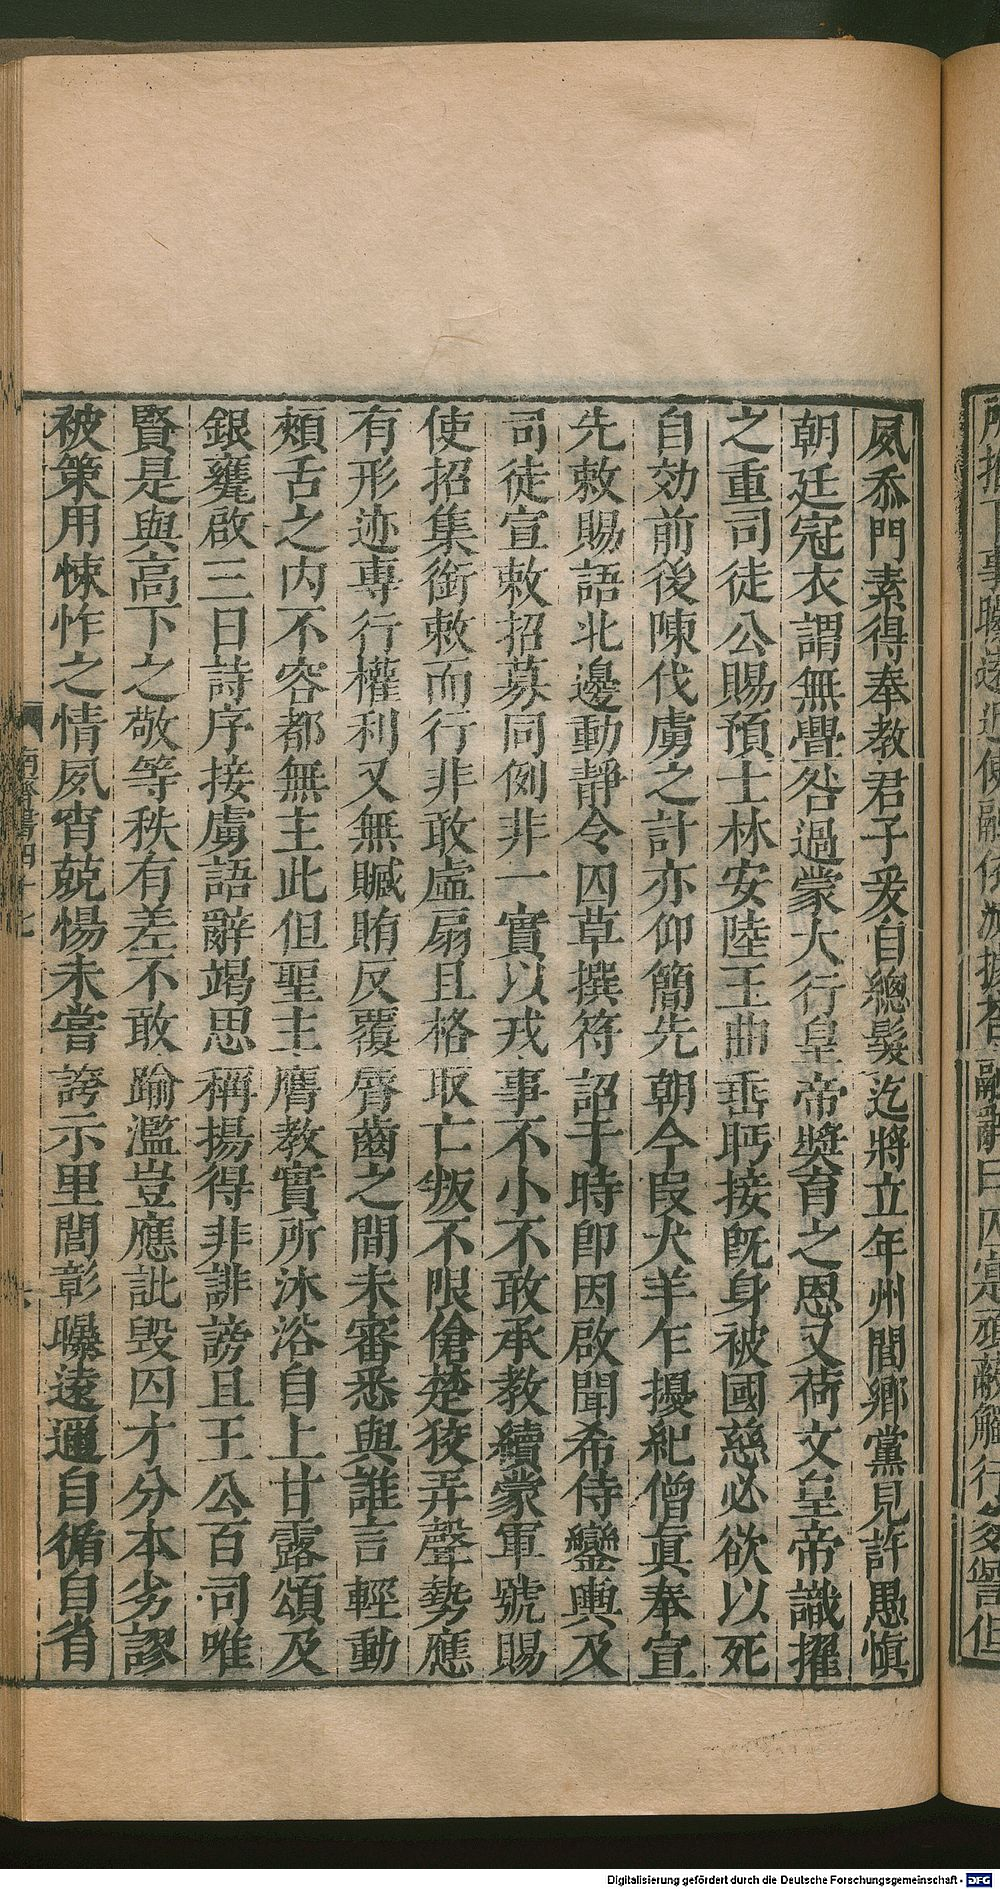 夙忝門素得奉教君子爰自總髮迄將立年州閭鄉黨見許愚愼
朝廷冠衣謂無舋咎過蒙大行皇帝奬育之恩又荷文皇帝識擢
之重司徒公賜預士林安陸王曲垂眄接旣身被國慈必欲以死
自効前後陳伐虜之計亦仰簡先朝今叚犬羊乍擾紀僧眞奉宣
先敕賜語北邊動靜令囚草撰符詔于時卽因啟聞希侍鑾輿及
司徒宣敕招募同例非一實以戎事不小不敢承教續蒙軍號賜
使招集銜敕而行非敢虛扇且格取亡叛不限傖楚狡弄聲勢應
有形迹専行權利又無贓賄反覆脣齒之間未審悉與誰言輕動
頰舌之内不容都無主此但聖主膺教實所沐浴自上甘露頌及
銀甕啟三日詩序接虜語辭竭思稱揚得非誹謗且王公百司唯
賢是與高下之敬等秩有差不敢踰濫豈應訿毀囚才分本劣謬
被策用悚怍之情夙宵兢惕未嘗誇示里閭彰曝遠邇自循自省
南齊書四十七
六
Digitalisierung gefördert durch die Deutsche Forschungsgemeinschaft - DFG